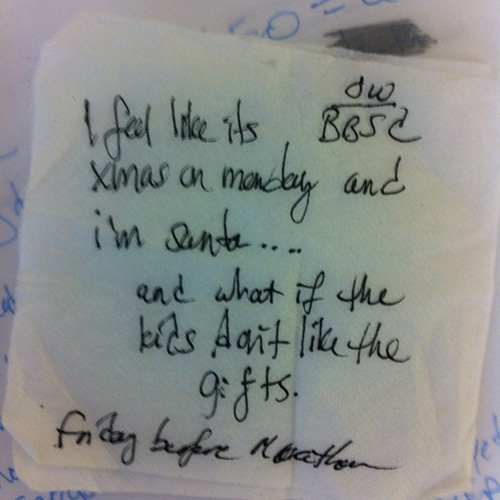 I feel like its
xmas on monday and
i'm santa....
and what if the
kids don't like the
gifts.
Friday before Marathon